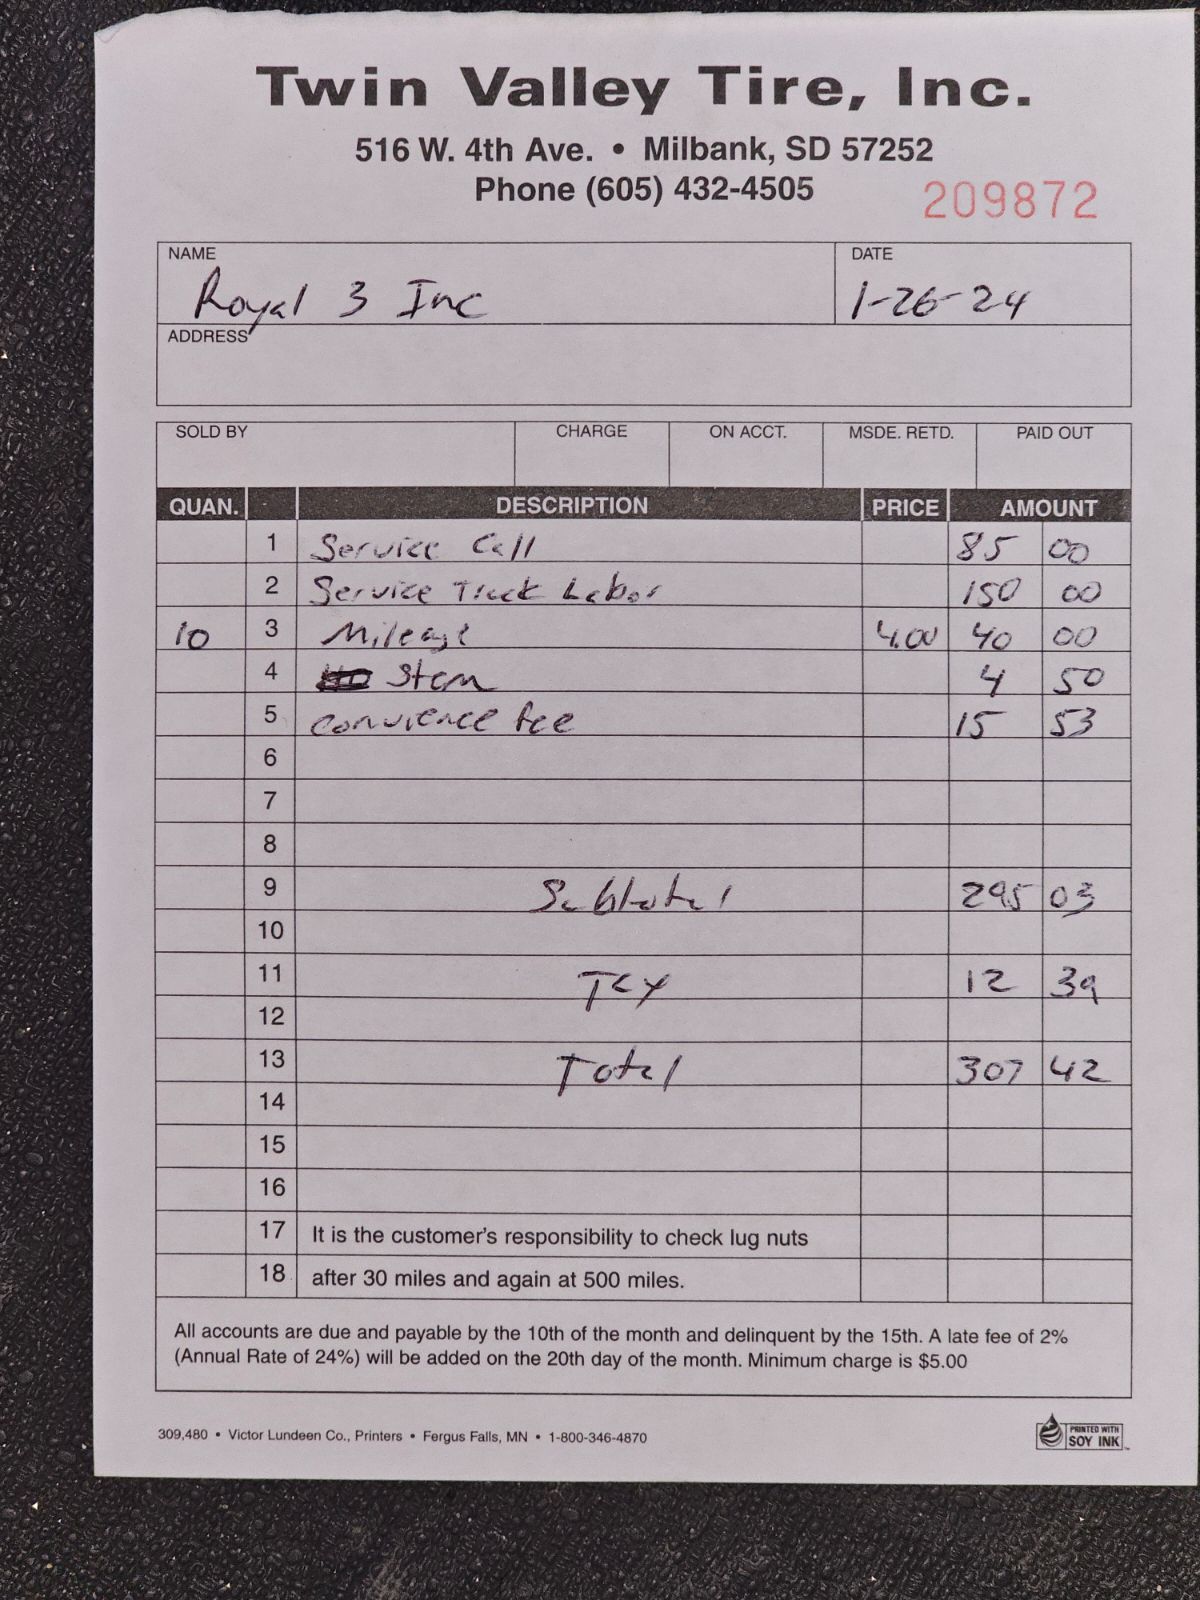 Twin Valley Tire, Inc.
516 W. 4th Ave. • Milbank, SD 57252
Phone (605) 432-4505
209872
NAME DATE
Royal 3 Inc 1-26-24
ADDRESS
SOLD BY CHARGE ON ACCT. MSDE. RETD. PAID OUT
QUAN. DESCRIPTION PRICE AMOUNT
1 Service Call 85 00
2 Service Truck Labor 150 00
10 3 Mileage 4.00 40 00
4 Stem 4 50
5 convience fee 15 53
6
7
8
9 Subtotal 295 03
10
11 Tax 12 39
12
13 Total 307 42
14
15
16
17 It is the customer's responsibility to check lug nuts
18 after 30 miles and again at 500 miles.
All accounts are due and payable by the 10th of the month and delinquent by the 15th. A late fee of 2%
(Annual Rate of 24%) will be added on the 20th day of the month. Minimum charge is $5.00
309,480 • Victor Lundeen Co., Printers • Fergus Falls, MN • 1-800-346-4870
PRINTED WITH
SOY INK